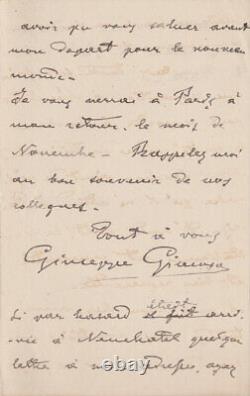 avoir pu vous saluer avant
mon depart pour le nouveau
monde.
Je vous verrai à Paris à
mon retour, le mois de
Novembre. Rappelez moi
au bon souvenir de nos
collegues.
Tout à vous
Giuseppe Giacosa
Si par hasard était arri-
vée à Neuchatel quelque
lettre à mon adresse, ayez
© thebu.com